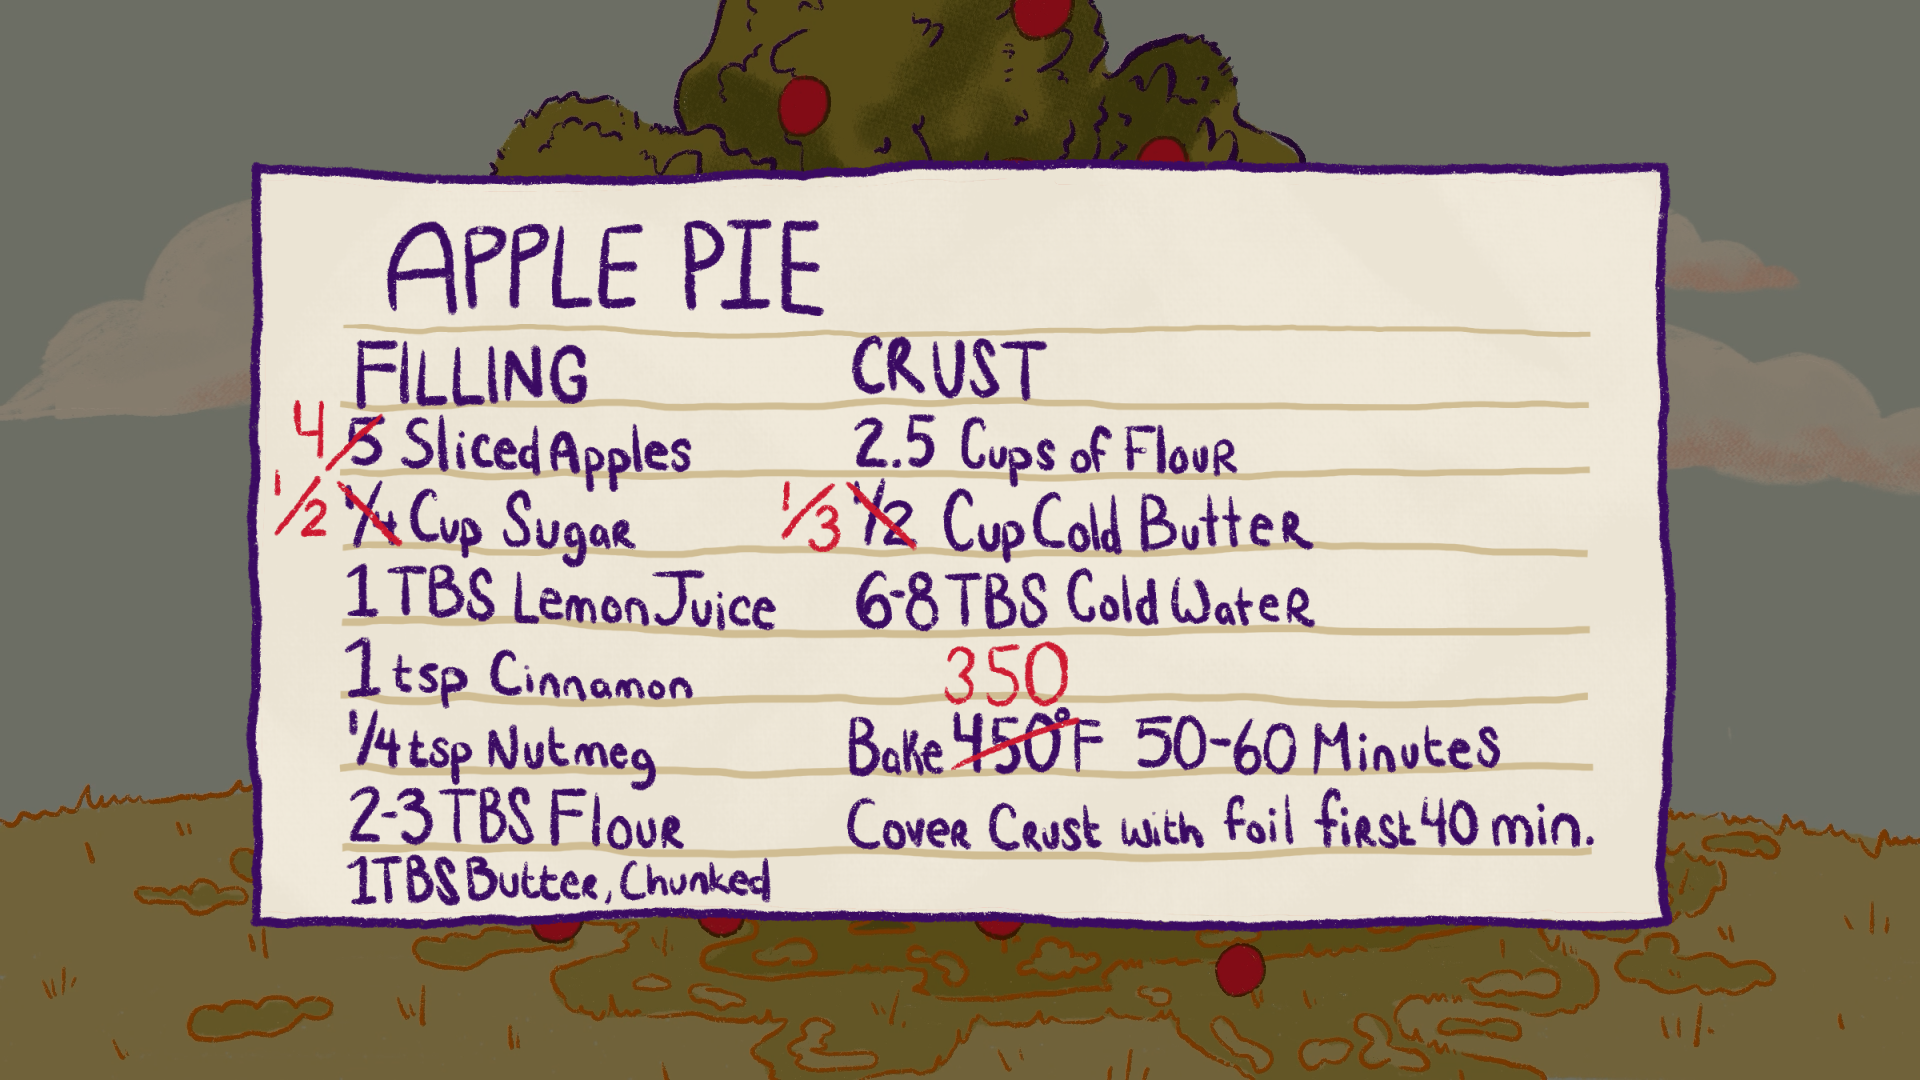 APPLE PIE
FILLING
4 5 Sliced Apples
1/2 1/4 Cup Sugar
1 TBS Lemon Juice
1 tsp Cinnamon
1/4 tsp Nutmeg
2-3 TBS Flour
1 TBS Butter, Chunked
CRUST
2.5 Cups of Flour
1/3 1/2 Cup Cold Butter
6-8 TBS Cold Water
350
Bake 450°F 50-60 Minutes
Cover Crust with foil first 40 min.